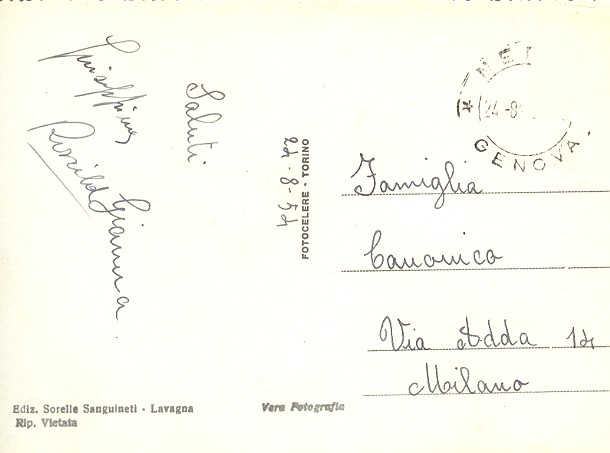 Saluti
Giuseppina
Gianna
24-8-54
FOTOCELERE - TORINO
24-8-
GENOVA
Famiglia
Canonico
Via Adda 14
Milano
Ediz. Sorelle Sanguineti - Lavagna
Rip. Vietata
Vera Fotografia